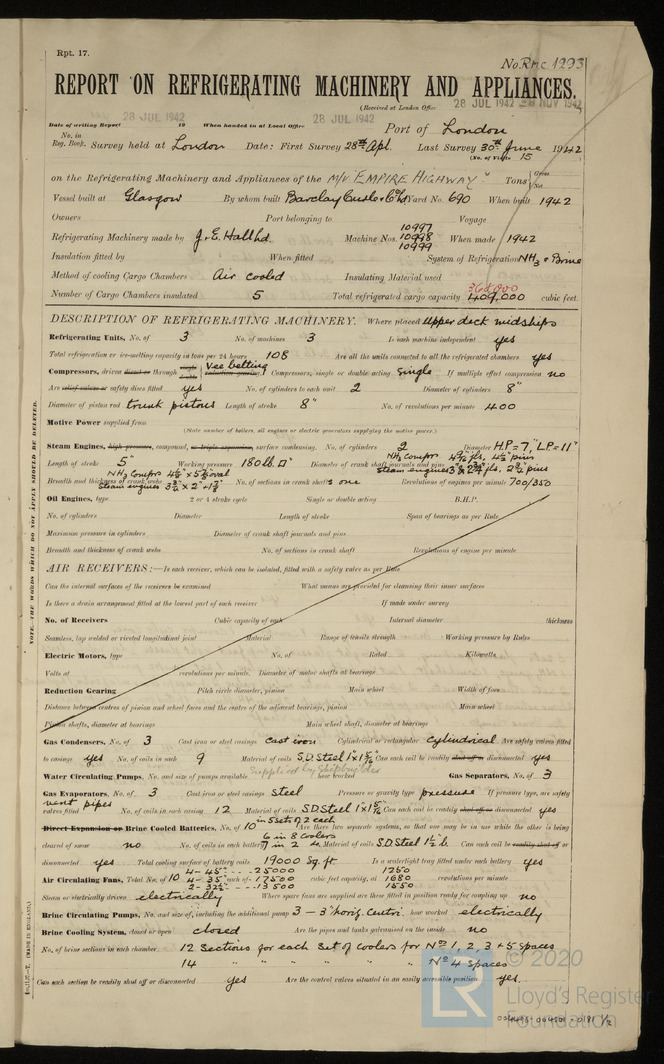 Rpt. 17.
No RMC 1293
REPORT ON REFRIGERATING MACHINERY AND APPLIANCES.
(Received at London Office 28 JUL 1942 28 NOV 1942
Date of writing Report 28 JUL 1942 19 When handed in at Local Office 28 JUL 1942 Port of London
No. in Reg. Book. Survey held at London Date: First Survey 28th Apl. Last Survey 30th June 1942
(No. of Visits 15
on the Refrigerating Machinery and Appliances of the M/V "EMPIRE HIGHWAY" Tons Gross Net
Vessel built at Glasgow By whom built Barclay Curle & Co Ltd Yard No. 690 When built 1942
Owners Port belonging to Voyage
Refrigerating Machinery made by J & E. Hall Ltd. Machine Nos. 10997 10998 10999 When made 1942
Insulation fitted by When fitted System of Refrigeration NH3 & Brine
Method of cooling Cargo Chambers Air cooled Insulating Material used
Number of Cargo Chambers insulated 5 Total refrigerated cargo capacity 409,000 cubic feet.
DESCRIPTION OF REFRIGERATING MACHINERY. Where placed Upper deck midships
Refrigerating Units, No. of 3 No. of machines 3 Is each machine independent yes
Total refrigeration or ice-melting capacity in tons per 24 hours 108 Are all the units connected to all the refrigerated chambers yes
Compressors, driven direct or through Vee belting Compressors, single or double acting Single If multiple effect compression no
Are relief valves or safety discs fitted yes No. of cylinders to each unit 2 Diameter of cylinders 8"
Diameter of piston rod trunk pistons Length of stroke 8" No. of revolutions per minute 400
Motive Power supplied from
(State number of boilers, oil engines or electric generators supplying the motive power.)
Steam Engines, high pressure, compound, or triple expansion, surface condensing. No. of cylinders 2 Diameter H.P = 7," L.P = 11"
Length of stroke 5" Working pressure 180 lb. □" Diameter of crank shaft journals and pins
Breadth and thickness of crank webs No. of sections in crank shafts one Revolutions of engines per minute 700/350
Oil Engines, type 2 or 4 stroke cycle Single or double acting B.H.P.
No. of cylinders Diameter Length of stroke Span of bearings as per Rule
Maximum pressure in cylinders Diameter of crank shaft journals and pins
Breadth and thickness of crank webs No. of sections in crank shaft Revolutions of engine per minute
AIR RECEIVERS:—Is each receiver, which can be isolated, fitted with a safety valve as per Rule
Can the internal surfaces of the receivers be examined What means are provided for cleansing their inner surfaces
Is there a drain arrangement fitted at the lowest part of each receiver If made under survey
No. of Receivers Cubic capacity of each Internal diameter thickness
Seamless, lap welded or riveted longitudinal joint Material Range of tensile strength Working pressure by Rules
Electric Motors, type No. of Rated Kilowatts
Volts at revolutions per minute. Diameter of motor shafts at bearings
Reduction Gearing Pitch circle diameter, pinion Main wheel Width of face
Distance between centres of pinion and wheel faces and the centre of the adjacent bearings, pinion Main wheel
Pinion shafts, diameter at bearings Main wheel shaft, diameter at bearings
Gas Condensers, No. of 3 Cast iron or steel casings Cast iron Cylindrical or rectangular Cylindrical Are safety valves fitted
to casings yes No. of coils in each 9 Material of coils S.D. Steel Can each coil be readily shut off or disconnected yes
Water Circulating Pumps, No. and size of pumps available Supplied by Shipbuilder how worked Gas Separators, No. of 3
Gas Evaporators, No. of 3 Cast iron or steel casings Steel Pressure or gravity type pressure If pressure type, are safety
valves fitted vent pipes No. of coils in each casing 12 Material of coils S.D. Steel Can each coil be readily shut off or disconnected yes
Direct Expansion or Brine Cooled Batteries, No. of 10 in 5 sets of 2 each Are there two separate systems, so that one may be in use while the other is being
cleared of snow no No. of coils in each battery 6 in 8 coolers 7 in 2 do. Material of coils S.D. Steel 1½" b. Can each coil be readily shut off or
disconnected yes Total cooling surface of battery coils 19000 Sq. ft Is a watertight tray fitted under each battery yes
Air Circulating Fans, Total No. of 10 4 - 45" - - - 25000 4 - 35" each of - 17500 2 - 32½" - - - 13500 cubic feet capacity, at 1250 1680 1550 revolutions per minute
Steam or electrically driven electrically Where spare fans are supplied are these fitted in position ready for coupling up no
Brine Circulating Pumps, No. and size of, including the additional pump 3 – 3" horiz. Centri. how worked electrically
Brine Cooling System, closed or open closed Are the pipes and tanks galvanised on the inside no
No. of brine sections in each chamber 12 Sections for each set of coolers for Nos 1, 2, 3 + 5 spaces
14 " " " " " No 4 spaces
Can each section be readily shut off or disconnected yes Are the control valves situated in an easily accessible position yes.
NOTE.—THE WORDS WHICH DO NOT APPLY SHOULD BE DELETED.
(MADE IN ENGLAND)
© 2020
Lloyd's Register
Foundation
LR